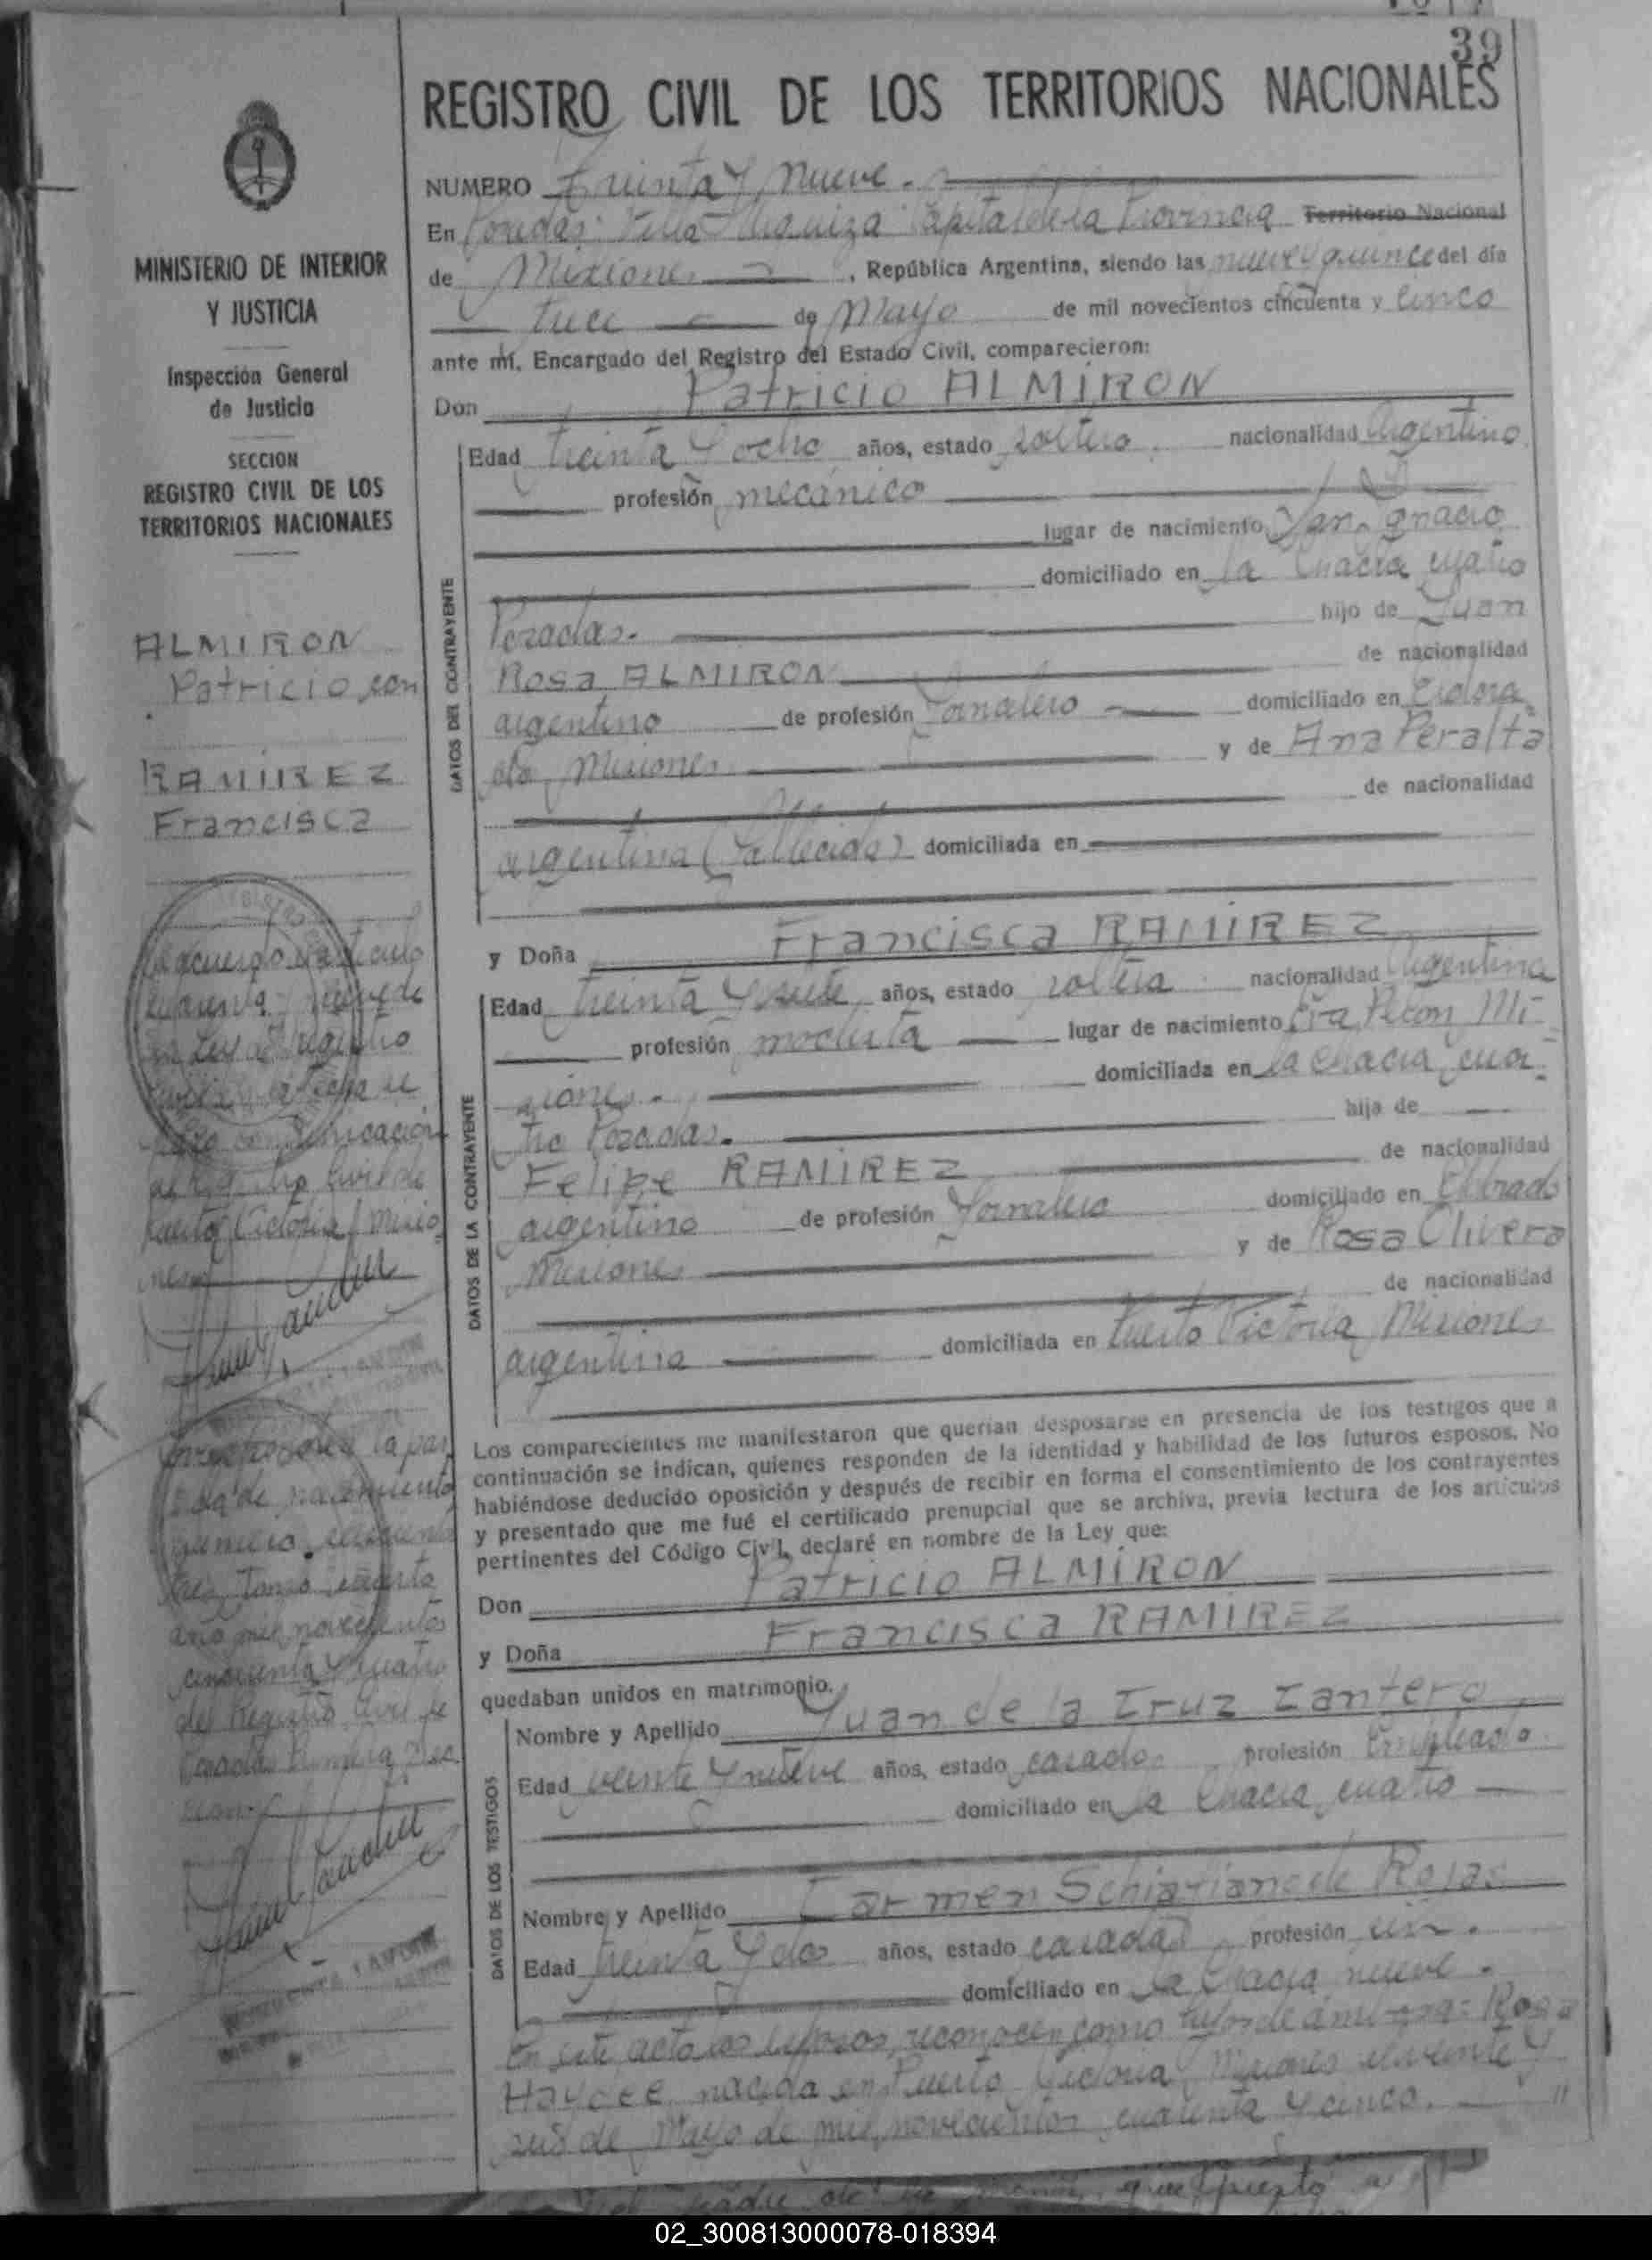 39
REGISTRO CIVIL DE LOS TERRITORIOS NACIONALES
MINISTERIO DE INTERIOR
Y JUSTICIA
Inspección General
de Justicia
SECCION
REGISTRO CIVIL DE LOS
TERRITORIOS NACIONALES
ALMIRON
Patricio con
RAMIREZ
Francisca
de acuerdo artículo
cuarenta y nueve de
la Ley de registro
fecha se
comunicación
al Registro Civil de
Puerto Victoria Misio
nes
la par
tida de nacimiento
número cincuenta
tres Tomo cuarto
año mil novecientos
cincuenta y cuatro
del Registro Civil de
Posadas Primera Sec
cion
NUMERO Treinta y nueve.
En Posadas: Villa Urquiza Capital de la Provincia Territorio Nacional
de Misiones, República Argentina, siendo las nueve y quince del día
trece de Mayo de mil novecientos cincuenta y cinco
ante mí, Encargado del Registro del Estado Civil, comparecieron:
Don Patricio ALMIRON
DATOS DEL CONTRAYENTE
Edad treinta y ocho años, estado soltero, nacionalidad Argentino
profesión mecánico
lugar de nacimiento San Ignacio
domiciliado en la Chacra cuatro
Posadas. hijo de Juan
Rosa ALMIRON de nacionalidad
argentino de profesión Jornalero domiciliado en Eldora
do Misiones y de Ana Peralta
de nacionalidad
argentina (Fallecida) domiciliada en
y Doña Francisca RAMIREZ
DATOS DE LA CONTRAYENTE
Edad treinta y siete años, estado soltera nacionalidad Argentina
profesión modista lugar de nacimiento Mi-
siones. domiciliada en la Chacra cua-
tro Posadas. hija de
Felipe RAMIREZ de nacionalidad
argentino de profesión Jornalero domiciliado en
Misiones y de Rosa Olivera
de nacionalidad
argentina domiciliada en Puerto Victoria Misiones
Los comparecientes me manifestaron que querían desposarse en presencia de los testigos que a
continuación se indican, quienes responden de la identidad y habilidad de los futuros esposos. No
habiéndose deducido oposición y después de recibir en forma el consentimiento de los contrayentes
y presentado que me fué el certificado prenupcial que se archiva, previa lectura de los artículos
pertinentes del Código Civil, declaré en nombre de la Ley que:
Don Patricio ALMIRON
y Doña Francisca RAMIREZ
quedaban unidos en matrimonio.
DATOS DE LOS TESTIGOS
Nombre y Apellido Juan de la Cruz Cantero
Edad veinte y nueve años, estado casado profesión Empleado
domiciliado en la Chacra cuatro
Nombre y Apellido Carmen de Rojas
Edad treinta y dos años, estado casada profesión sin.
domiciliado en la Chacra nueve.
En este acto los esposos reconocen como hijos de ambos: Rosa
Haydee nacida en Puerto Victoria Misiones el veinte y
seis de Mayo de mil novecientos cuarenta y cinco.
02_300813000078-018394